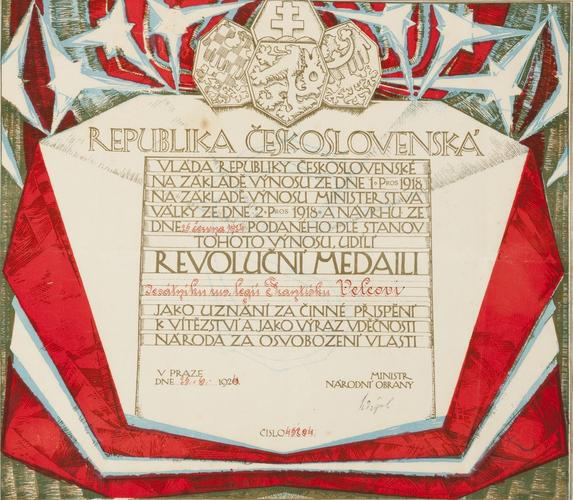 REPUBLIKA ČESKOSLOVENSKÁ
VLÁDA REPUBLIKY ČESKOSLOVENSKÉ
NA ZÁKLADĚ VÝNOSU ZE DNE 1·PROS 1918,
NA ZÁKLADĚ VÝNOSU MINISTERSTVA
VÁLKY ZE DNE 2·PROS 1918·A NÁVRHU ZE
DNE 25 června 1924 PODANÉHO DLE STANOV
TOHOTO VÝNOSU, UDÍLÍ
REVOLUČNÍ MEDAILI
desátníku rus. legií Františku Velcovi
JAKO UZNÁNÍ ZA ČINNÉ PŘISPĚNÍ
K VÍTĚZSTVÍ A JAKO VÝRAZ VDĚČNOSTI
NÁRODA ZA OSVOBOZENÍ VLASTI
V PRAZE
DNE 192
MINISTR
NÁRODNÍ OBRANY
ČÍSLO